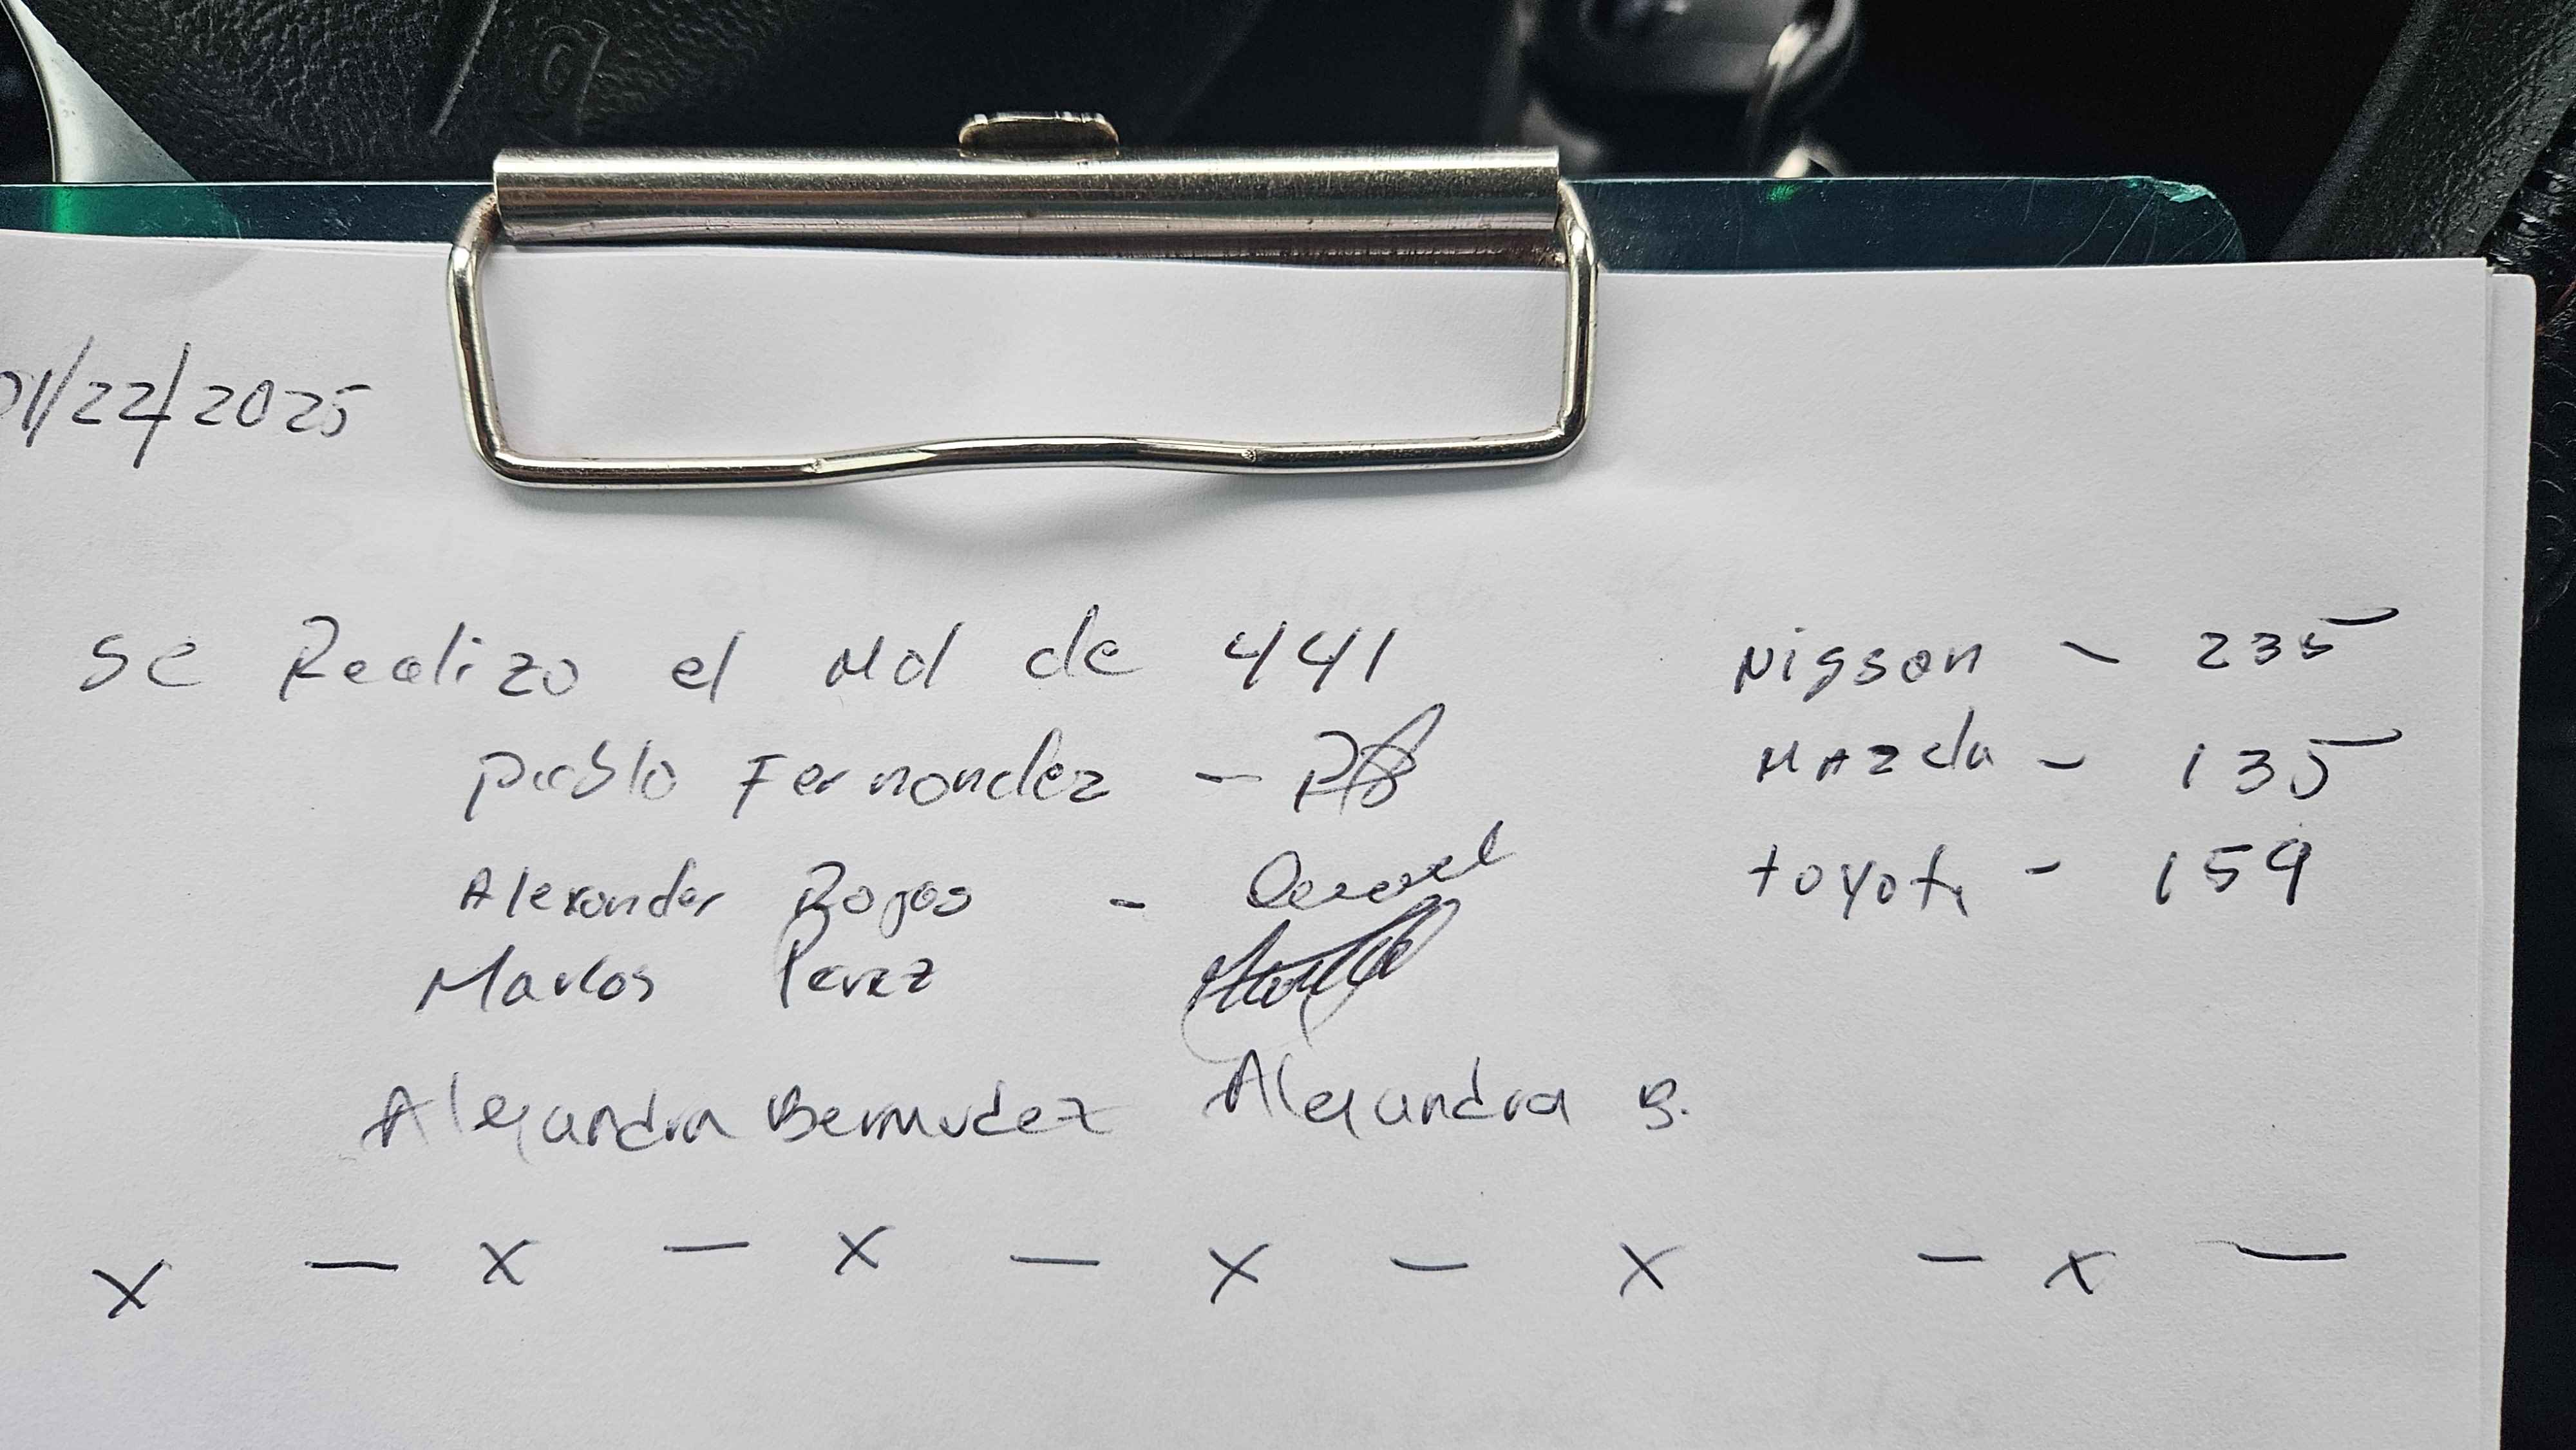 01/22/2025
Se Realizo el Md de 441
Nissan - 235
Pablo Fernandez -
Mazda - 135
Alexander Rojas -
toyota - 159
Marlos Perez
Alejandra Bermudez Alejandra B.
x - x - x - x - x - x -